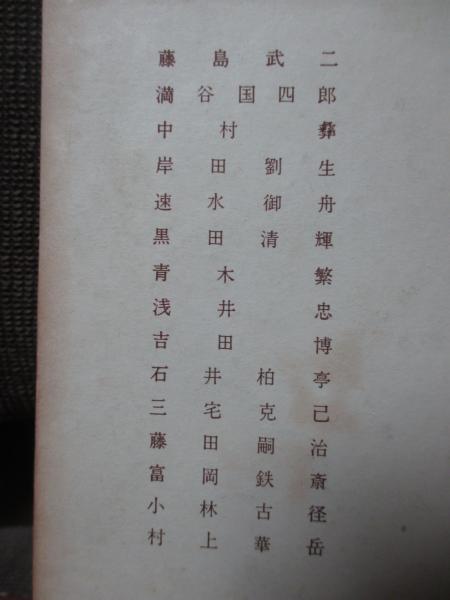 藤島武二
満谷国四郎
中村彝
岸田劉生
速水御舟
黒田清輝
青木繁
浅井忠
吉田博
石井柏亭
三宅克己
藤田嗣治
富岡鉄斎
小林古径
村上華岳